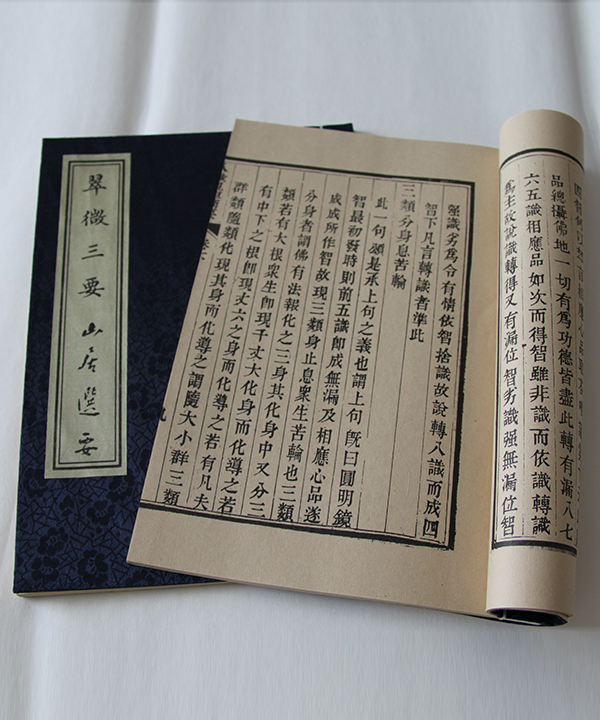 翠微三要 山居選要
品總攝佛地一切有爲功德皆盡此轉有漏八七
六五識相應品如次而得智雖非識而依識轉識
爲主故說識轉得又有漏位智劣識强無漏位智
强識劣爲令有情依智捨識故說轉八識而成四
智下凡言轉識者準此
三類分身息苦輪
此一句頌是承上句之義也謂上句旣曰圓明鏡
智最初發時則前五識即成無漏及相應心品遂
成成所作智故現三類身止息衆生苦輪也三類
分身者謂佛有法報化之三身其化身中又分三
類若有大根衆生即現千丈大化身而化導之若
有中下之根即現丈六之身而化導之若有凡夫
群類隨類化現其身而化導之謂隨大小群三類